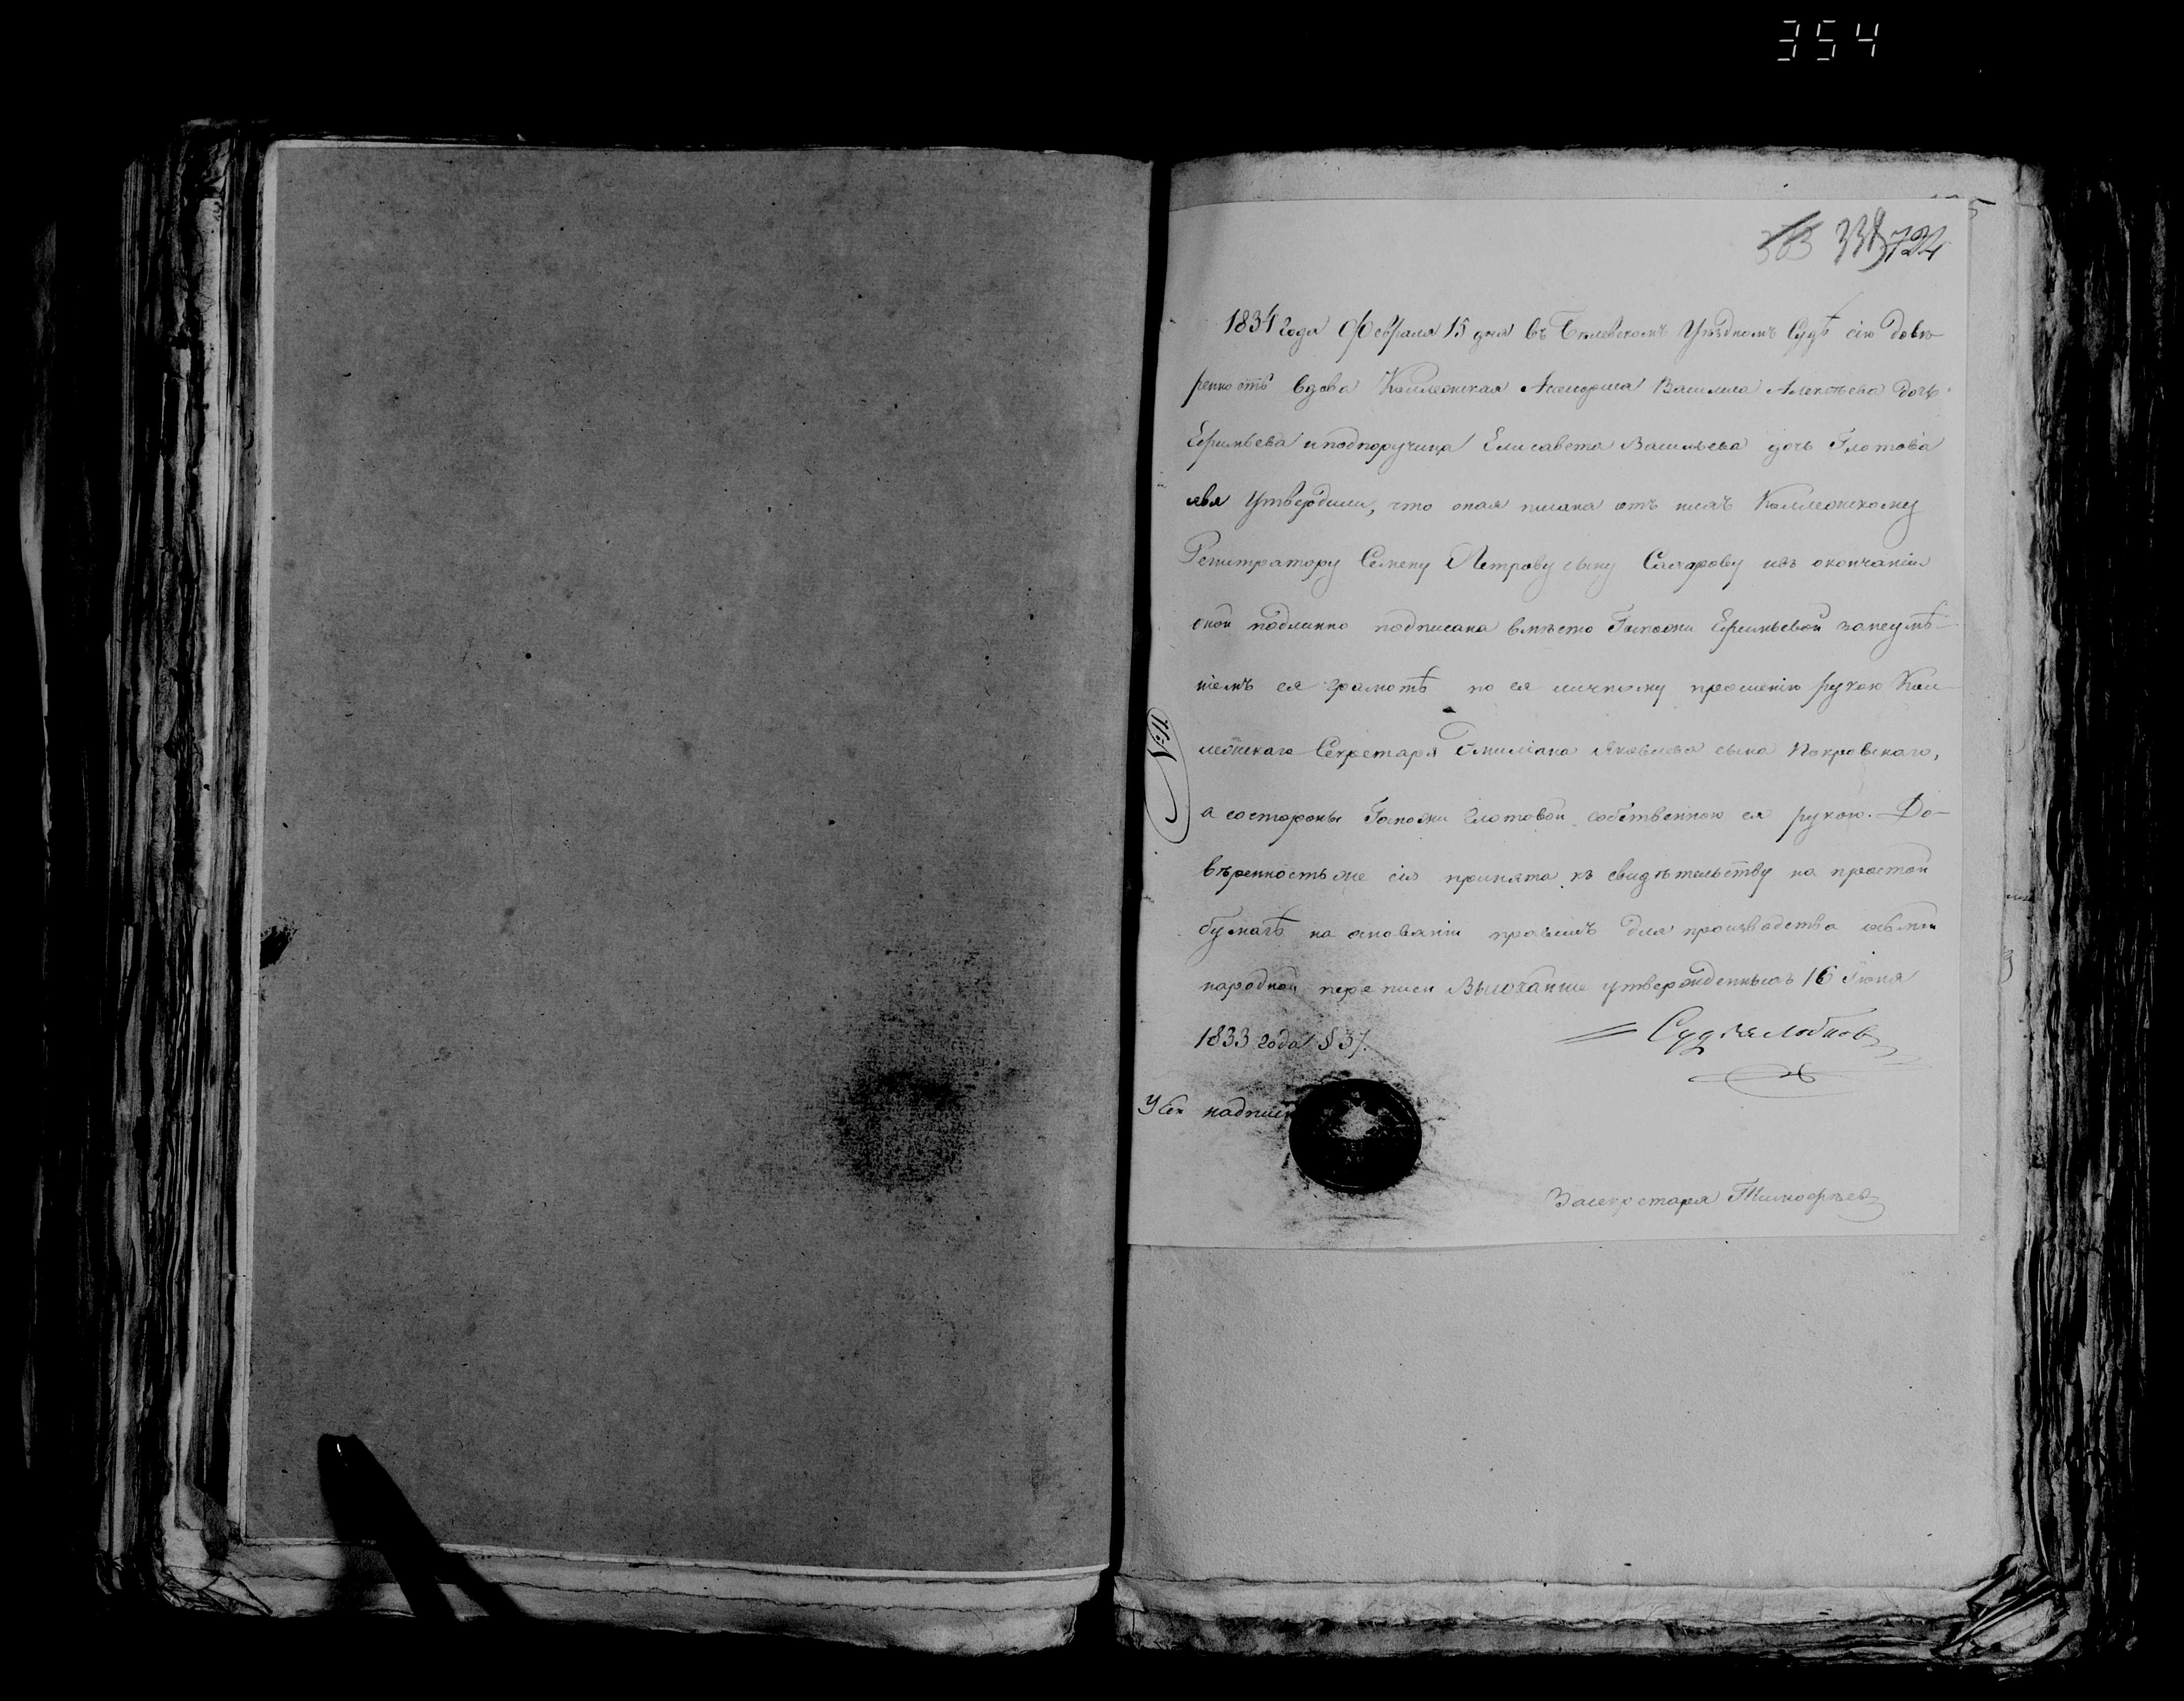 354
338 724
1834 года Февраля 15 дня въ Бѣлевскомъ Уѣздномъ Судѣ сію довѣ-
ренность вдова Коллежская Асессорша Василиса Алексѣева дочь
Ефимьева и подпоручица Елисавета Васильева дочь Глотова
явя утвердили, что оная писана отъ нихъ Коллежскому
Регистратору Семену Петрову сыну Сахарову и въ окончаніи
оной подлинно подписана вмѣсто Госпожи Ефимьевой за неумѣ-
ніемъ ея грамотѣ по ея личному прошенію рукою Кол-
лежскаго Секретаря Емиліана Яковлева сына Покровскаго,
а со стороны Госпожи Глотовой собственною ея рукою. До-
вѣренность же сія принята къ свидѣтельству на простой
бумагѣ на основаніи правилъ для производства осьмой
народной переписи Высочайше утвержденныхъ 16 Іюня
1833 года § 37.
Судья
У сей надписи
За секретаря Тимофѣевъ